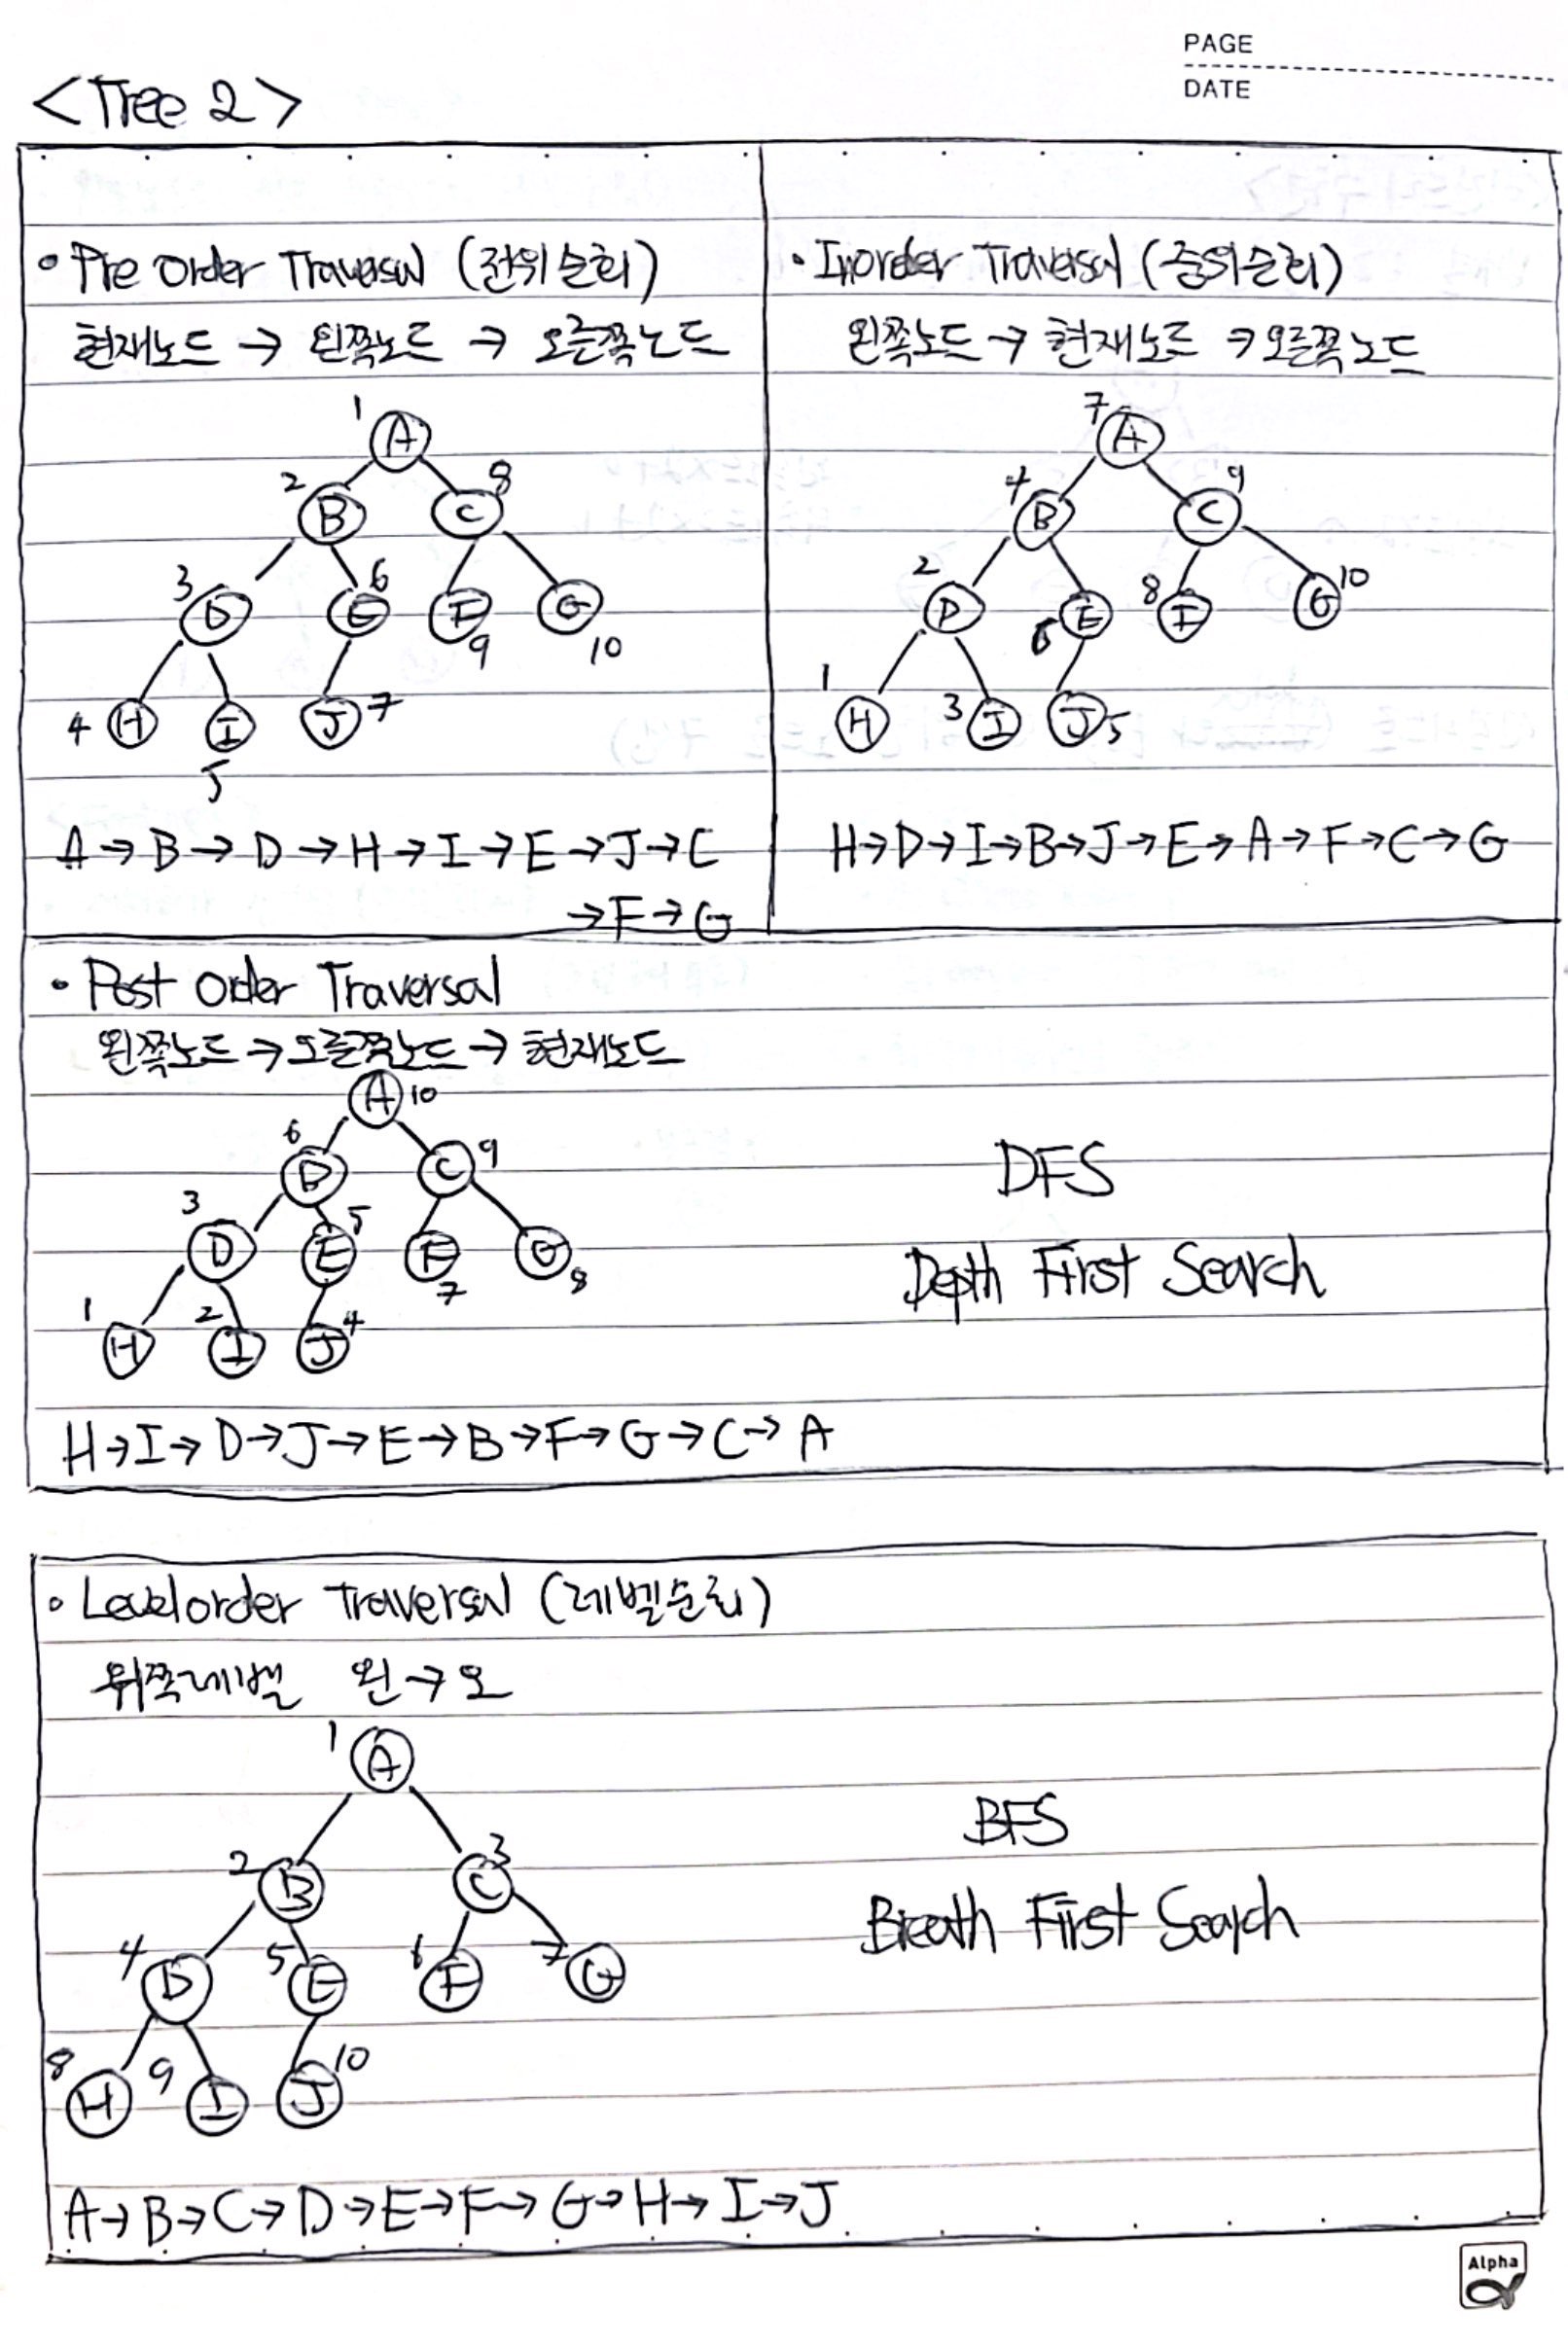 PAGE
DATE
<Tree 2>
• Pre Order Traversal (전위순회)
현재노드 → 왼쪽노드 → 오른쪽노드
1
A
2
8
B
C
3
6
D
E
F
G
9
10
4
H
I
J
7
5
A → B → D → H → I → E → J → C
→ F → G
• Inorder Traversal (중위순회)
왼쪽노드 → 현재노드 → 오른쪽노드
7
A
4
9
B
C
2
10
D
6
E
8
F
G
1
H
3
I
J
5
H → D → I → B → J → E → A → F → C → G
• Post Order Traversal
왼쪽노드 → 오른쪽노드 → 현재노드
A
10
6
9
B
C
3
5
D
E
F
G
7
8
1
2
4
H
I
J
H → I → D → J → E → B → F → G → C → A
DFS
Depth First Search
• Levelorder Traversal (레벨순회)
위쪽레벨 왼 → 오
1
A
2
3
B
C
4
5
6
7
D
E
F
G
8
9
10
H
I
J
A → B → C → D → E → F → G → H → I → J
BFS
Breath First Search
Alpha